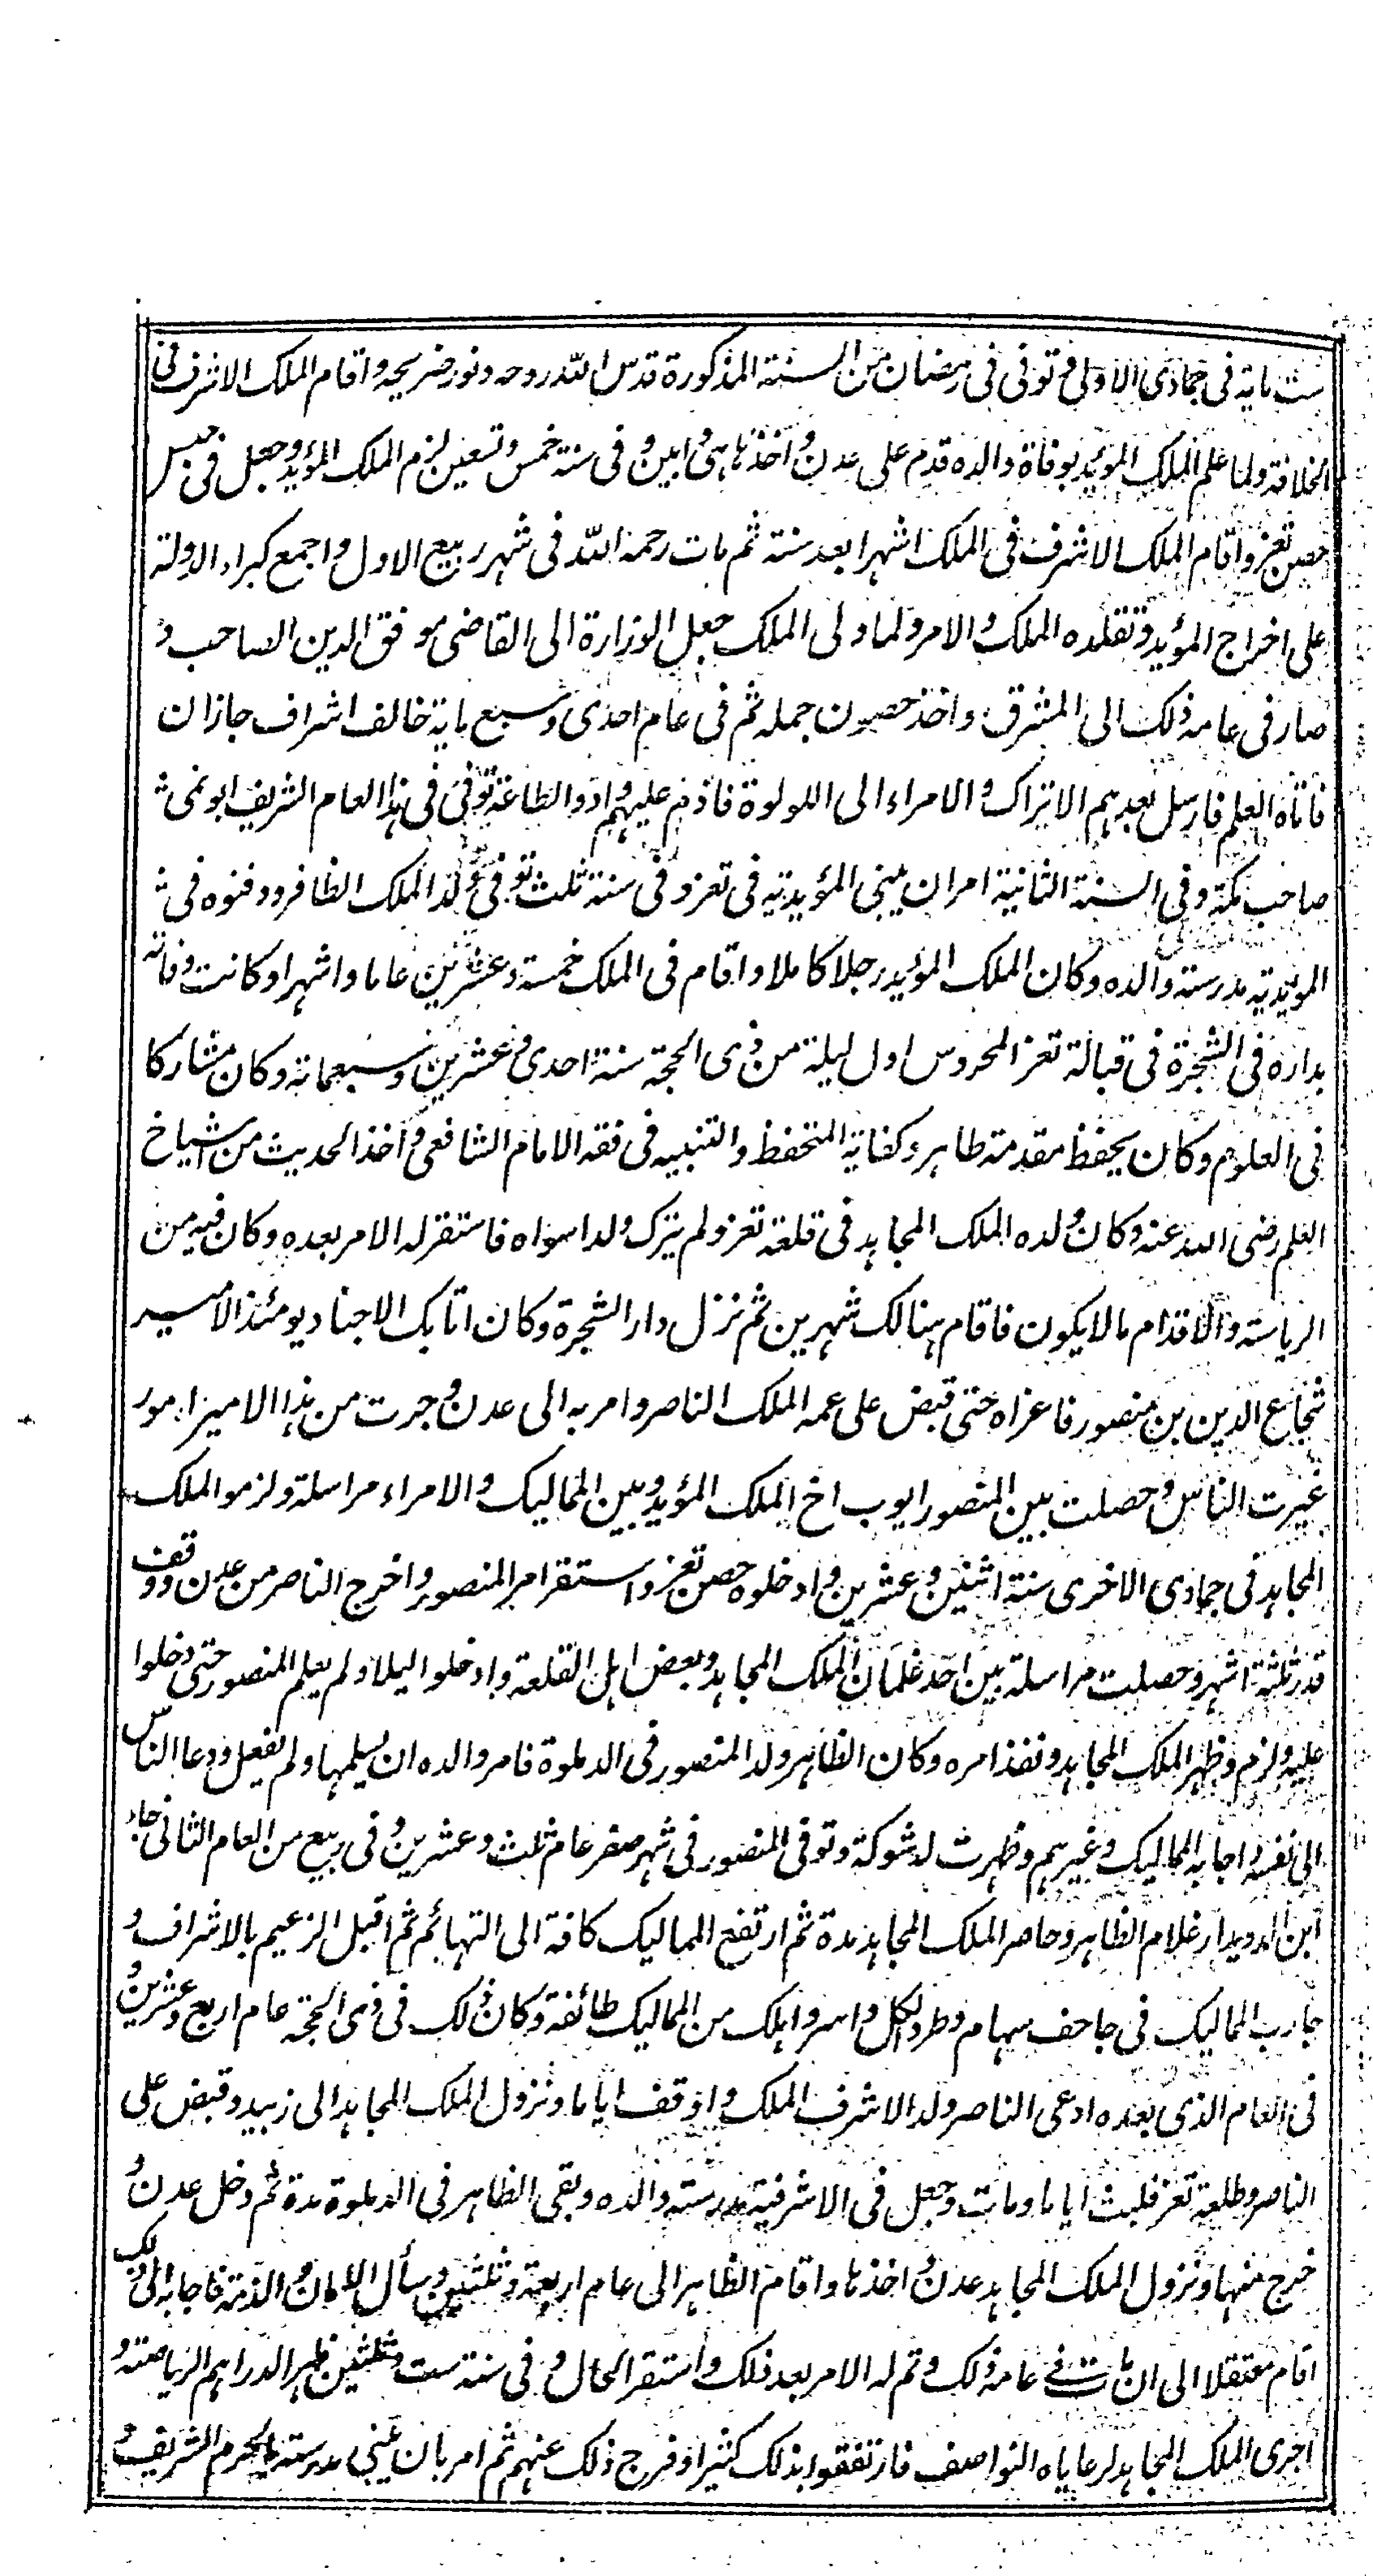 ست ماية فى جمادى الاولى وتوفى فى رمضان من السنة المذكورة قدس الله روحه ونور ضريحه واقام الملك الاشرف فى
الخلافة ولما علم الملك المؤيد بوفاة والده قدم على عدن واخذ ها هى وابين وفى سنة خمس وتسعين لزم الملك المؤيد وجعل فى حبس
حصن تعز واقام الملك الاشرف فى الملك اشهرا بعد سنة ثم مات رحمه الله فى شهر ربيع الاول واجمع كبراء الدولة
على اخراج المؤيد وتقلده الملك والامر ولما ولى الملك جعل الوزارة الى القاضى موفق الدين الصاحب و
صار فى عامه ذلك الى المشرق واخذ حصون جمله ثم فى عام احدى وسبع ماية خالف اشراف جازان
فاتاه العلم فارسل بعدهم الاتراك والامراء الى اللولوة فاذم عليهم وادوا الطاعة وتوفى فى هذا العام الشريف ابو نمى
صاحب مكة وفى السنة الثانية امر ان يبنى المؤيدية فى تعز وفى سنة ثلث توفى ولد الملك الظافر ودفنوه فى
المؤيدية مدرسة والده وكان الملك المؤيد رجلا كاملا واقام فى الملك خمسة وعشرين عاما واشهرا وكانت وفاته
بداره فى الشجرة فى قبالة تعز المحروس اول ليلة من ذى الحجة سنة احدى وعشرين وسبعماية وكان مشاركا
فى العلوم وكان يحفظ مقدمة طاهر وكفاية المتحفظ والتنبيه فى فقه الامام الشافعى واخذ الحديث من اشياخ
العلم رضى الله عنه وكان ولده الملك المجاهد فى قلعة تعز ولم يترك ولدا سواه فاستقر له الامر بعده وكان فيه من
الرياسة والاقدام ما لا يكون فاقام هنالك شهرين ثم نزل دار الشجرة وكان اتابك الاجناد يومئذ الامير
شجاع الدين بن منصور فاغراه حتى قبض على عمه الملك الناصر وامر به الى عدن وجرت من هذا الامير امور
غيرت الناس وحصلت بين المنصور ايوب اخ الملك المؤيد وبين المماليك والامراء مراسلة ولزموا الملك
المجاهد فى جمادى الاخرى سنة اثنين وعشرين وادخلوه حصن تعز واستقر امر المنصور واخرج الناصر من عدن ووقف
قدر ثلثة اشهر وحصلت مراسلة بين احد غلمان الملك المجاهد وبعض اهل القلعة وادخلوا ليلا ولم يعلم المنصور حتى دخلوا
عليه ولزم وظهر الملك المجاهد ونفذ امره وكان الظاهر ولد المنصور فى الدملوة فامر والده ان يسلمها ولم يفعل ودعا الناس
الى نفسه واجابه المماليك وغيرهم وظهرت له شوكة وتوفى المنصور فى شهر صفر عام ثلث وعشرين وفى ربيع من العام الثانى جاء
ابن الدويدار غلام الظاهر وحاصر الملك المجاهد مدة ثم ارتفع المماليك كافة الى التهائم ثم اقبل الزعيم بالاشراف و
حارب المماليك فى جاحف سهام وطرد الكل واسر واهلك من المماليك طائفة وكان ذلك فى ذى الحجة عام اربع وعشرين و
فى العام الذى بعده ادعى الناصر ولد الاشرف الملك واوقف اياما ونزول الملك المجاهد الى زبيد وقبض على
الناصر وطلعة تعز فلبث اياما ومات وجعل فى الاشرفية مدرسة والده وبقى الظاهر فى الدملوة مدة ثم دخل عدن و
خرج منها ونزول الملك المجاهد عدن واخذها واقام الظاهر الى عام اربعة وثلثين وسأل الامان والذمة فاجابه الى ذلك
اقام معتقلا الى ان مات فى عامه ذلك وتم له الامر بعد ذلك واستقر الحال وفى سنة ست وثلثين ظهر الدراهم الرياضة و
اجرى الملك المجاهد لرعاياه النواصف فارتفقوا بذلك كثيرا وفرج ذلك عنهم ثم امر بان يبنى مدرسته بالحرم الشريف و